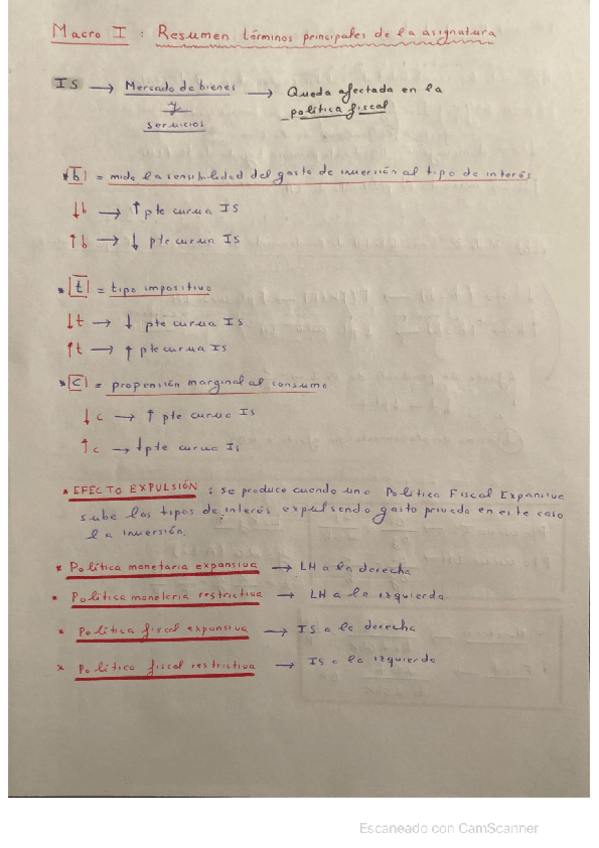 Macro I : Resumen términos principales de la asignatura
IS → Mercado de bienes y servicios → Queda afectada en la política fiscal
* |b| = mide la sensibilidad del gasto de inversión al tipo de interés
↓b → ↑ pte curva IS
↑b → ↓ pte curva IS
* |t| = tipo impositivo
↓t → ↓ pte curva IS
↑t → ↑ pte curva IS
* |c| = propensión marginal al consumo
↓c → ↑ pte curva IS
↑c → ↓ pte curva IS
* EFECTO EXPULSIÓN : se produce cuando una Política Fiscal Expansiva
sube los tipos de interés expulsando gasto privado en este caso
la inversión.
* Política monetaria expansiva → LM a la derecha
* Política monetaria restrictiva → LM a la izquierda
* Política fiscal expansiva → IS a la derecha
* Política fiscal restrictiva → IS a la izquierda
Escaneado con CamScanner